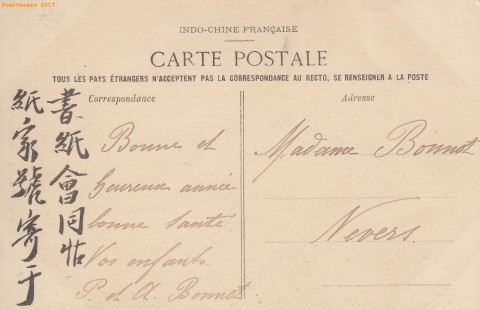 ©cartacaro 2017
INDO-CHINE FRANÇAISE
CARTE POSTALE
TOUS LES PAYS ÉTRANGERS N'ACCEPTENT PAS LA CORRESPONDANCE AU RECTO, SE RENSEIGNER A LA POSTE
Correspondance
Bonne et
heureuse année
bonne santé.
Vos enfants
P. et A. Bonnot.
書紙會同帖
紙家號寄于
Adresse
Madame Bonnot
Nevers